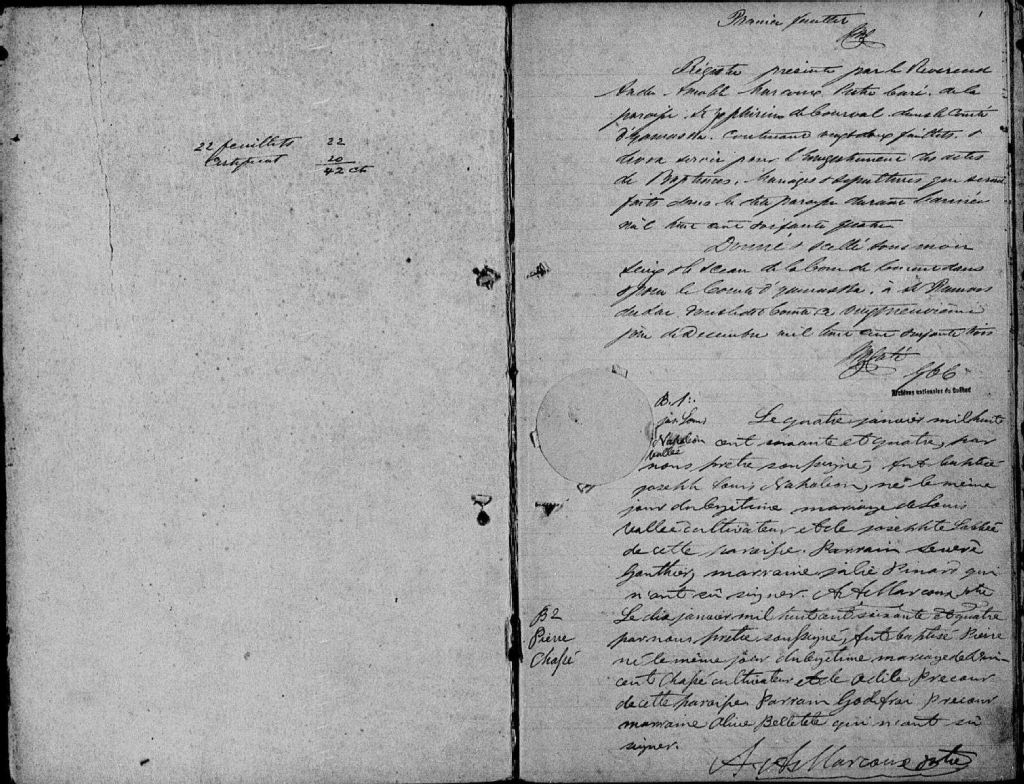 22 feuillets 22
Certificat 20
42 ct
Premier feuillet
1
Régistre présenté par le Révérend
Marcoux, Prêtre Curé de la
paroisse St Zéphirin de Courval dans le Comté
d'Yamaska, contenant vingt deux feuillets, &
devra servir pour l'Enregistrement des actes
de Baptêmes, Mariages & sépultures qui seront
faits dans la dite paroisse durant l'année
mil huit cent soixante quatre
Donné & scellé sous mon
Seing & le Sceau de la Cour de Circuit dans
& pour le Comté d'Yamaska, à St François
du Lac dans le dit Comté ce vingtneuvième
jour de Décembre mil huit cent soixante trois
Archives nationales du Québec
B. 1:
jos. Louis
Napoléon
Vallée
Le quatre janvier mil huit
cent soixante et quatre, par
nous prêtre soussigné, fut baptisé
joseph Louis Napoléon, né le même
jour du légitime mariage de Louis
Vallée cultivateur et de josephte
de cette paroisse. Parrain Sévère
Gauthier, marraine julie Pinard qui
n'ont sû signer. A Marcoux ptre
B2
Pierre
Chassé
Le dix janvier mil huit cent soixante et quatre
par nous prêtre soussigné, fut baptisé Pierre
né le même jour du légitime mariage de Vin-
cent Chassé cultivateur et de Odile Precour
de cette paroisse. Parrain Godfroi Precour
marraine Olive Belletete qui n'ont sû
signer.
Marcoux ptre